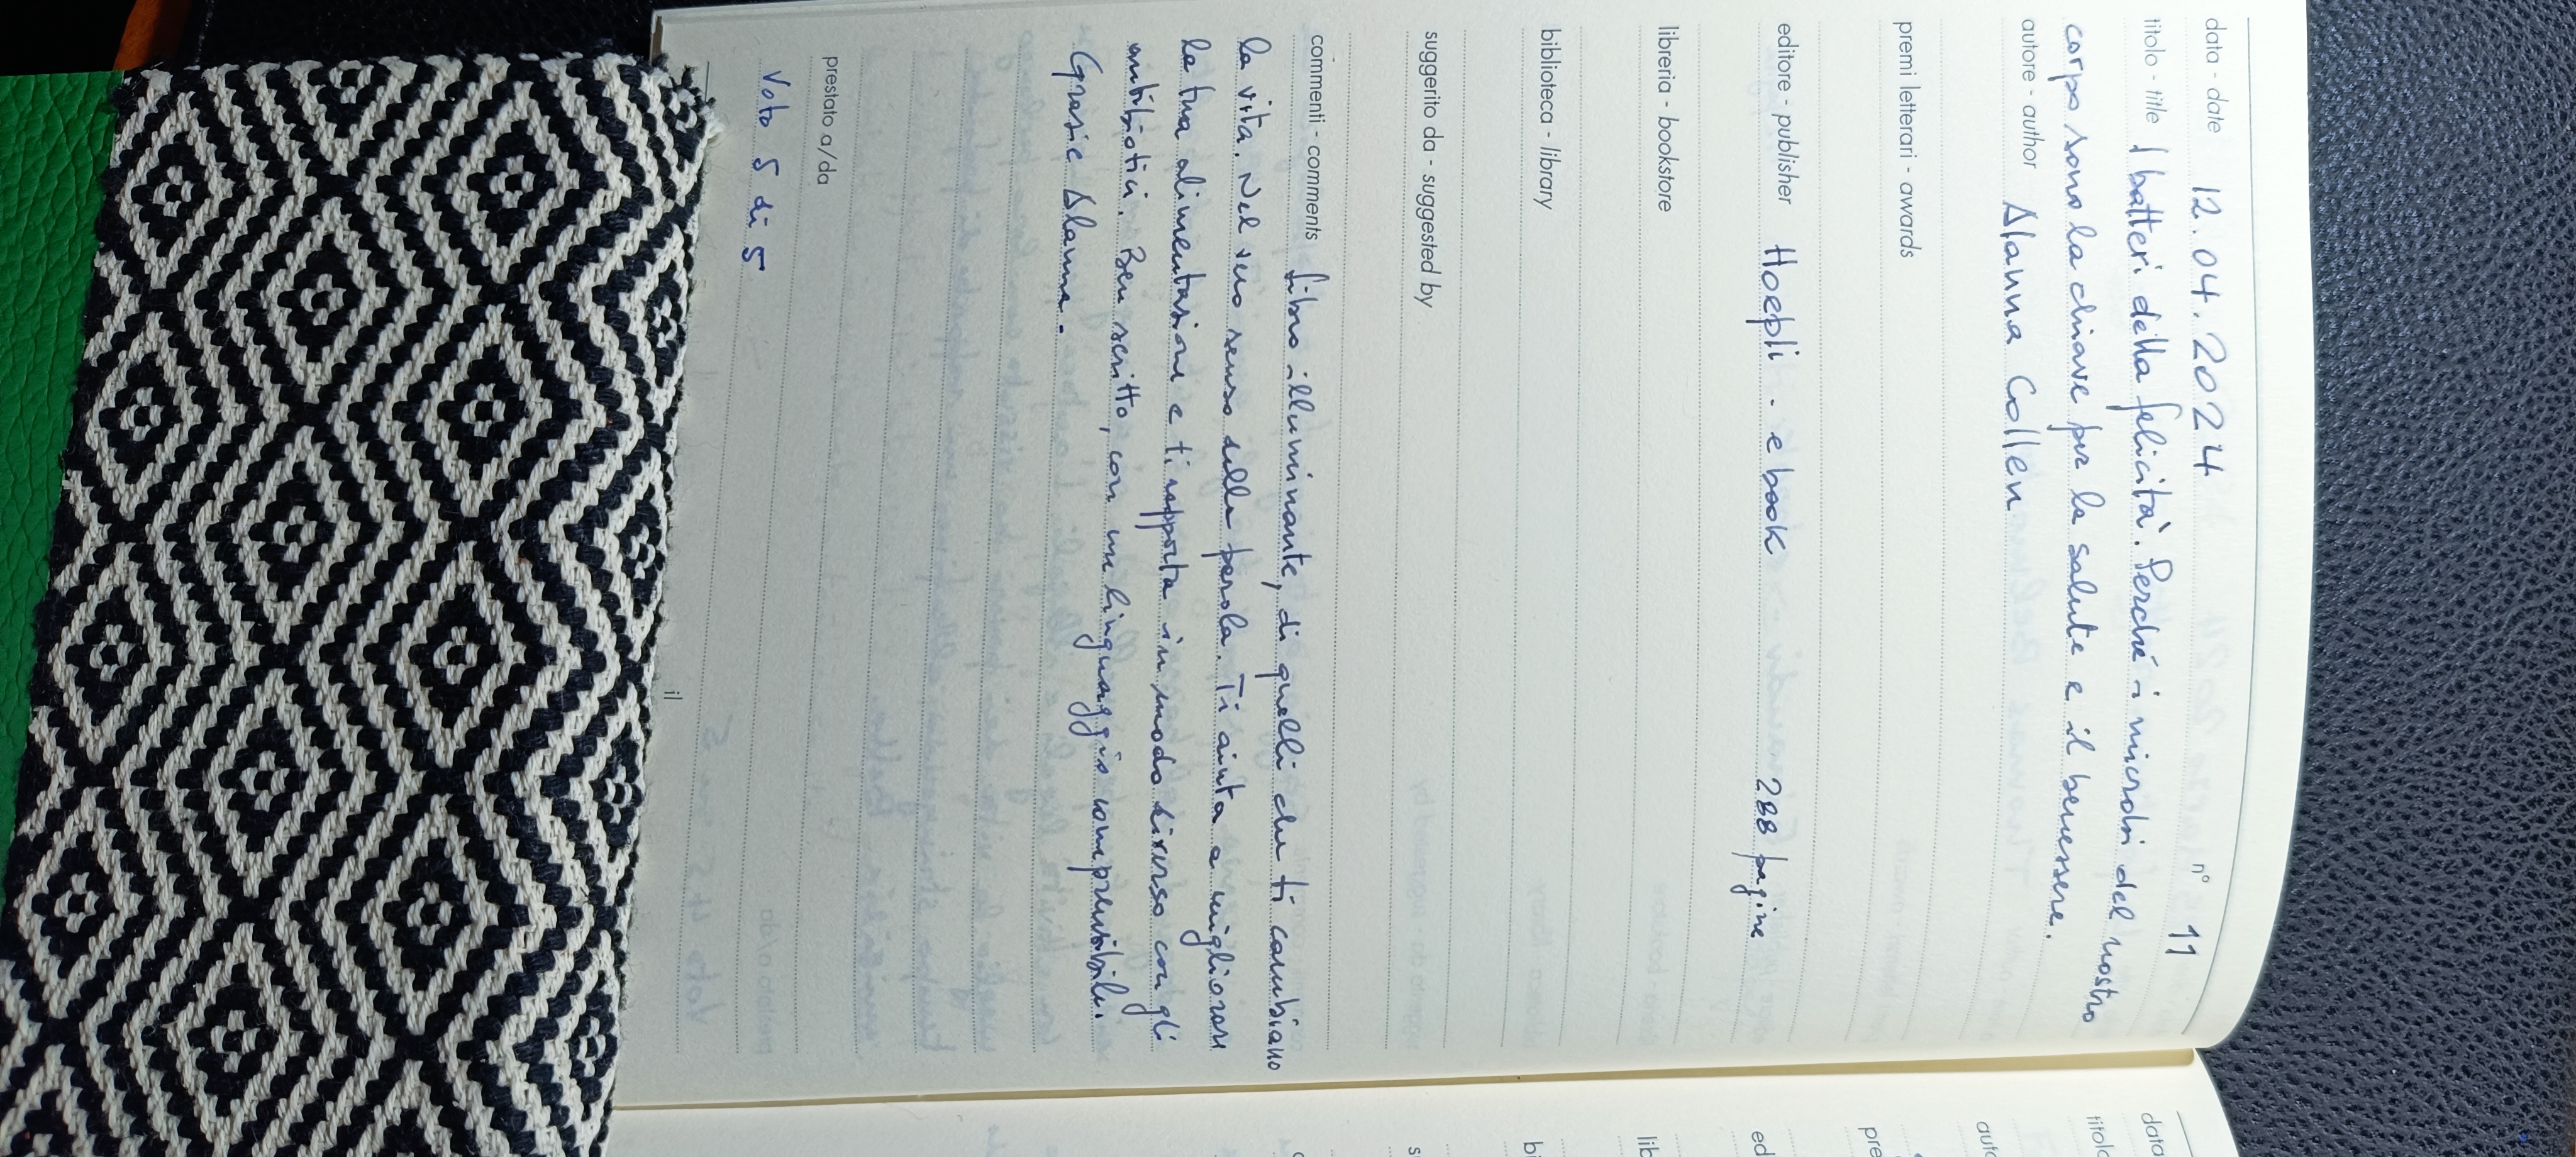 data - date 12.04.2024 n° 11
titolo - title I batteri della felicità. Perché i microbi del nostro
corpo sono la chiave per la salute e il benessere.
autore - author Alanna Collen
premi letterari - awards
editore - publisher Hoepli - ebook 288 pagine
libreria - bookstore
biblioteca - library
suggerito da - suggested by
commenti - comments Libro illuminante, di quelli che ti cambiano
la vita. Nel vero senso della parola. Ti aiuta a migliorare
la tua alimentazione e ti rapporta in modo diverso con gli
antibiotici. Ben scritto, con un linguaggio comprensibile.
Grazie Alanna.
prestato a/da
Voto 5 di 5
il
data
titolo
auto
pre
ed
lib
bi
s
c